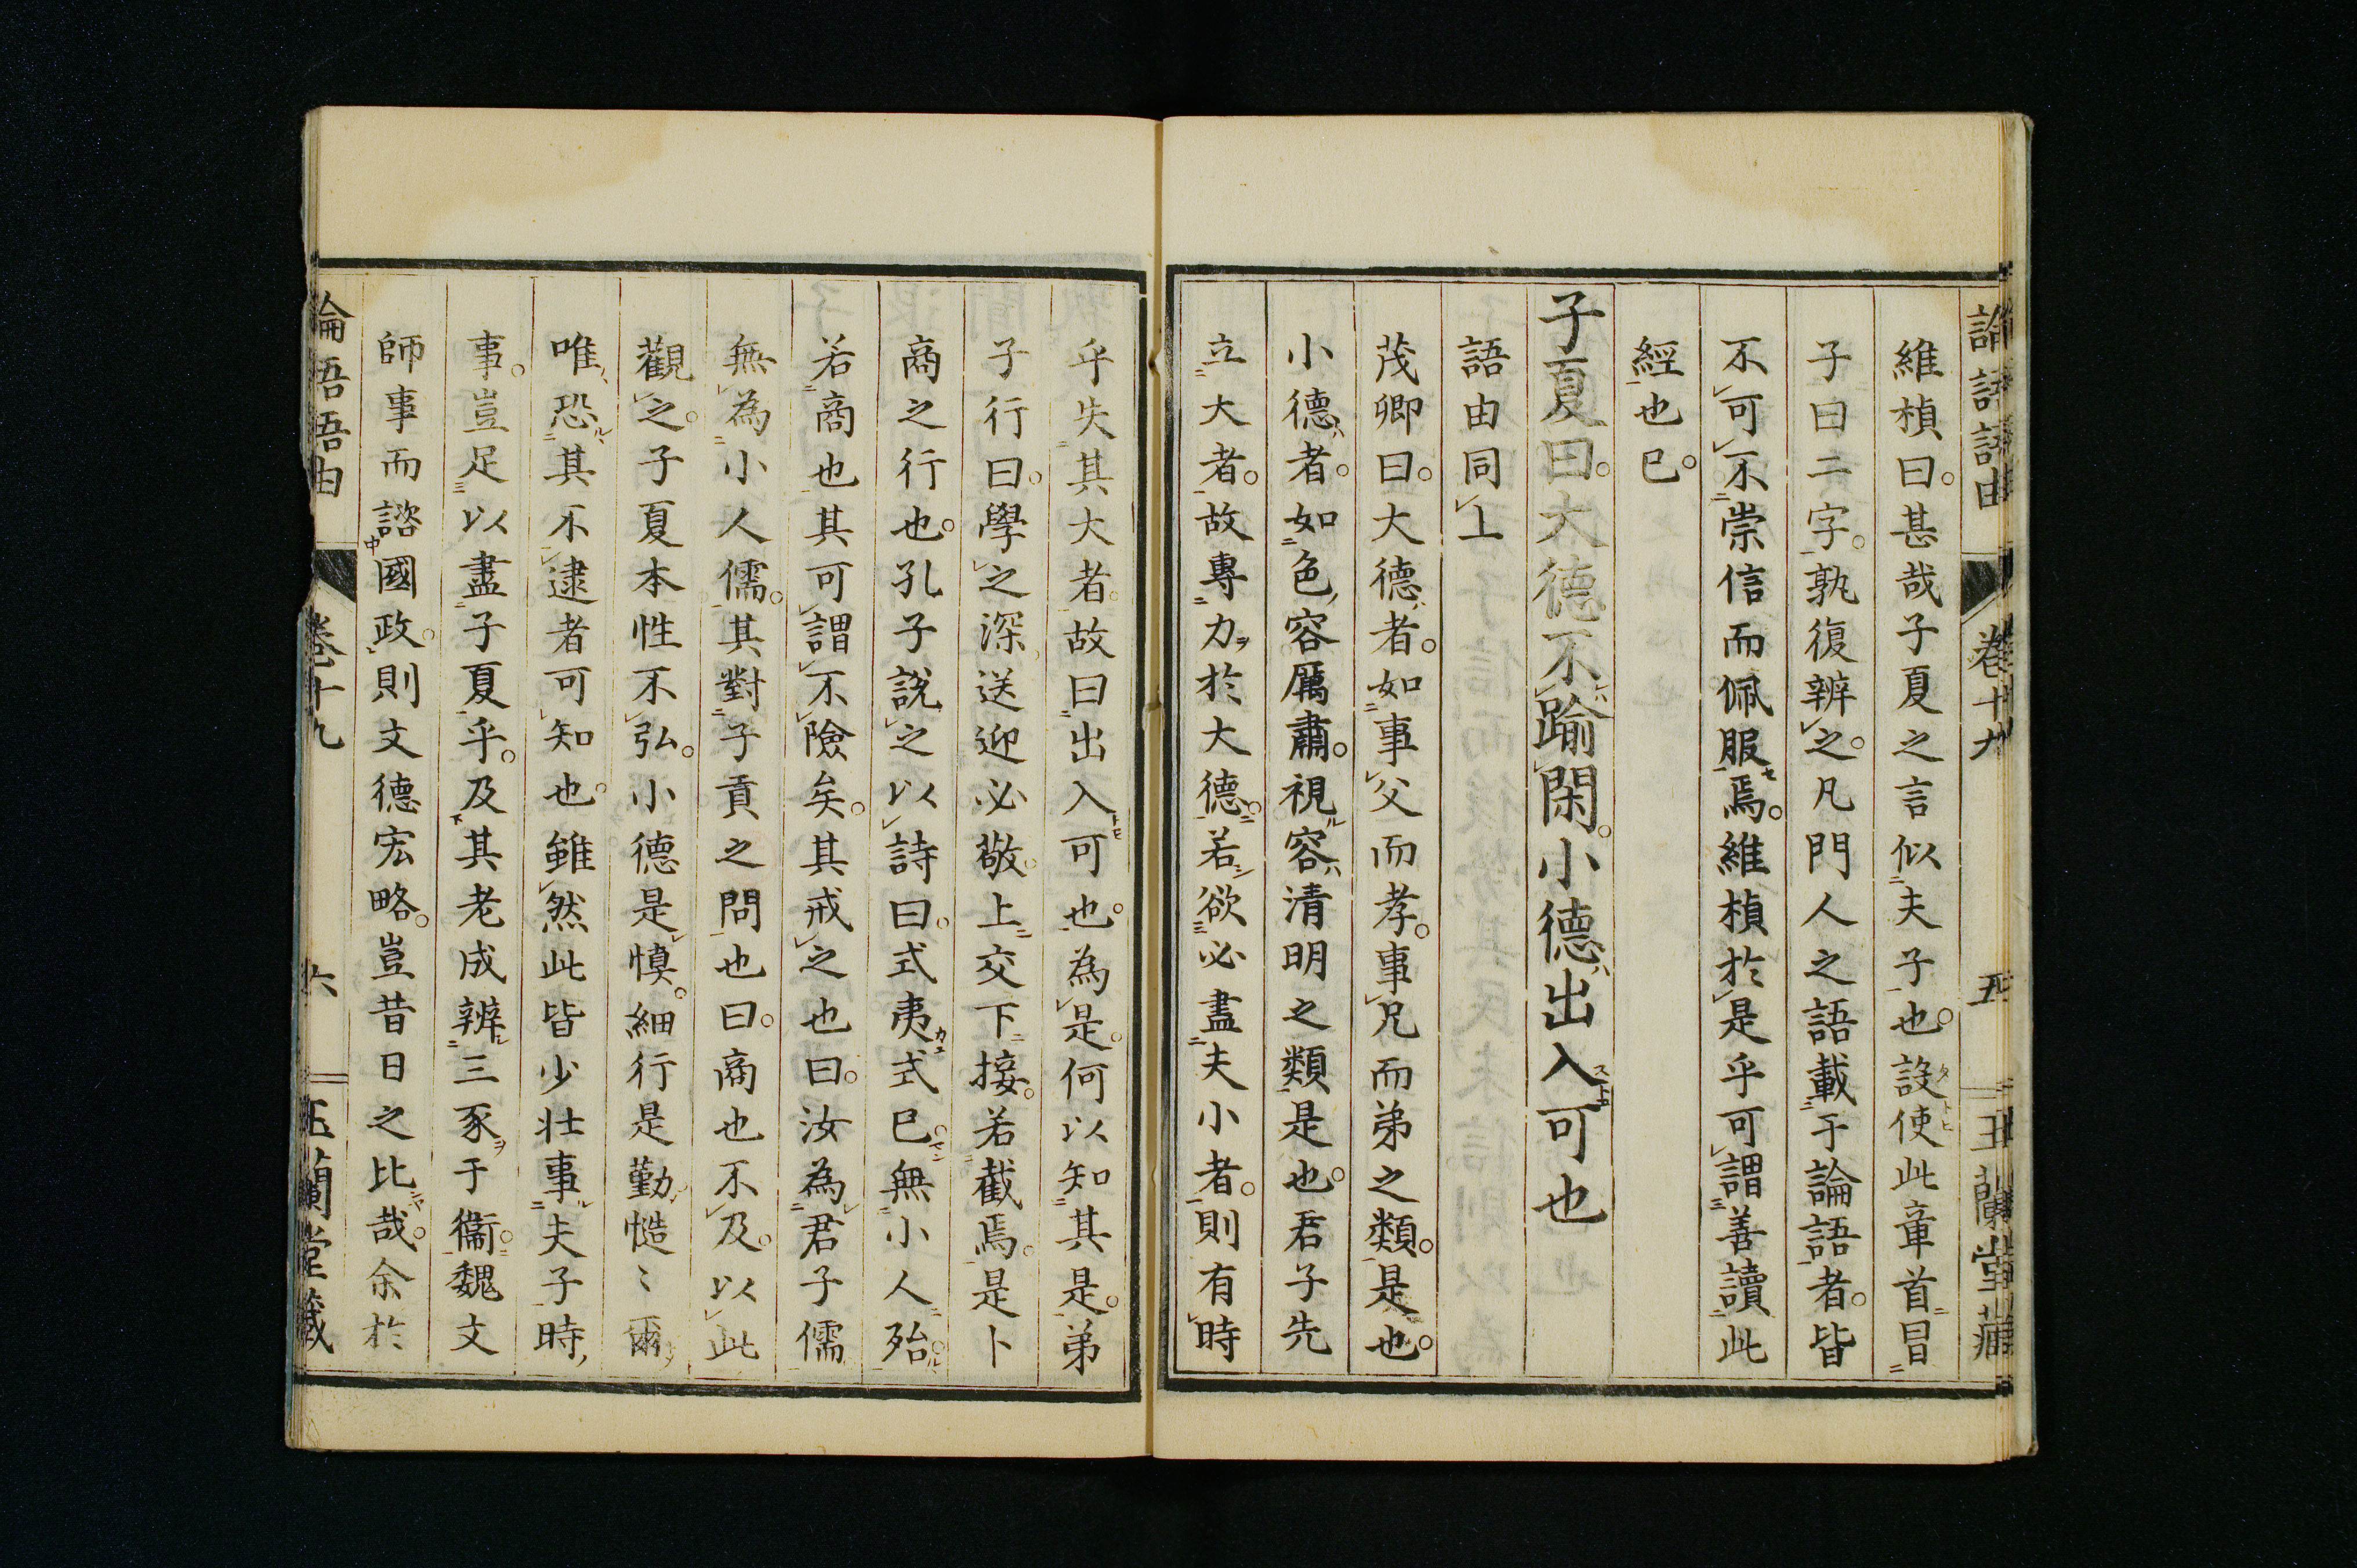 論語語由 卷十九 五 玉蘭堂藏
維楨曰。甚哉子夏之言似夫子也。設使此章首冒
子曰二字。孰復辨之。凡門人之語載于論語者。皆
不可不崇信而佩服焉。維楨於是乎可謂善讀此
經也已。
子夏曰。大德不踰閑。小德出入可也
語由同上
茂卿曰。大德者。如事父而孝。事兄而弟之類。是也。
小德者。如色容厲肅。視容清明之類是也。君子先
立大者。故專力於大德。若欲必盡夫小者。則有時
乎失其大者。故曰出入可也。為是。何以知其是。弟
子行曰。學之深。送迎必敬。上交下接。若截焉。是卜
商之行也。孔子說之以詩曰。式夷式已。無小人殆。
若商也其可謂不險矣。其戒之也曰。汝為君子儒
無為小人儒。其對子貢之問也曰。商也不及。以此
觀之。子夏本性不弘。小德是慎。細行是勤。慥〻爾
唯恐其不逮者可知也。雖然此皆少壯事夫子時,
事。豈足以盡子夏乎。及其老成辨三豕于衞。魏文
師事而諮國政。則文德宏略。豈昔日之比哉。余於
論語語由 卷十九 六 玉蘭堂藏